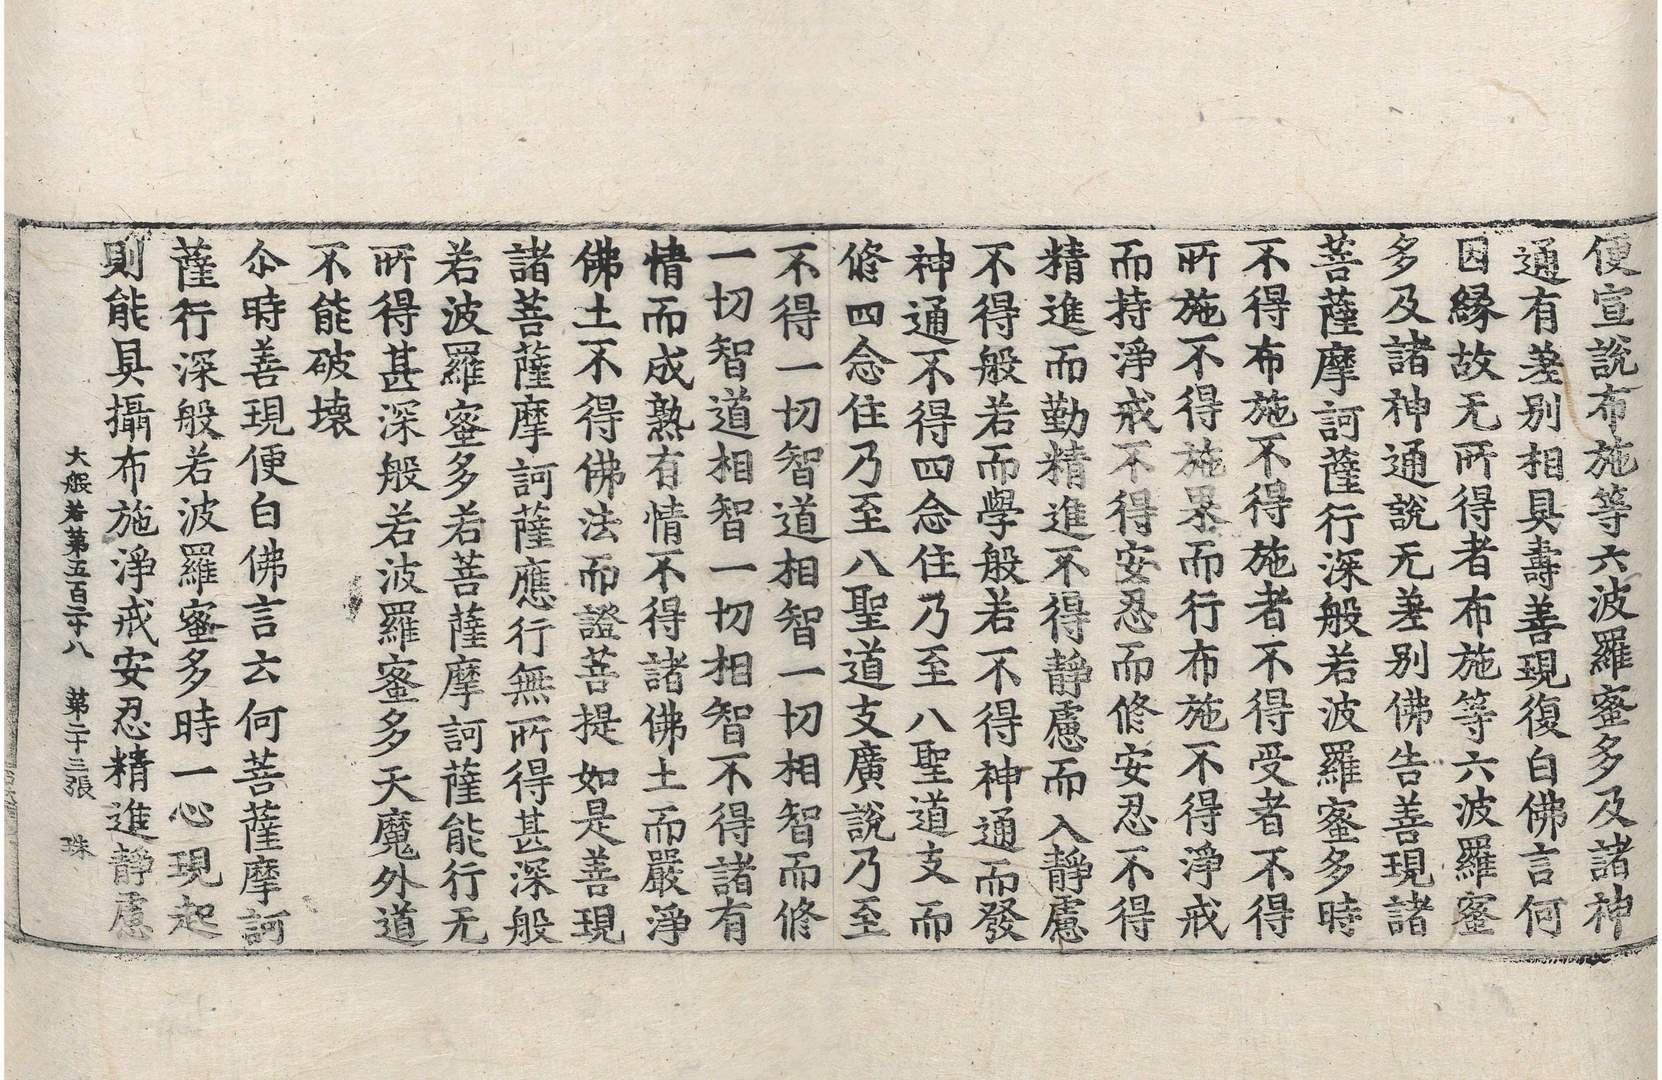 便宣說布施等六波羅蜜多及諸神
通有差別相具壽善現復白佛言何
因緣故无所得者布施等六波羅蜜
多及諸神通說无差別佛告善現諸
菩薩摩訶薩行深般若波羅蜜多時
不得布施不得施者不得受者不得
所施不得施果而行布施不得淨戒
而持淨戒不得安忍而修安忍不得
精進而勤精進不得靜慮而入靜慮
不得般若而學般若不得神通而發
神通不得四念住乃至八聖道支而
修四念住乃至八聖道支廣說乃至
不得一切智道相智一切相智而修
一切智道相智一切相智不得諸有
情而成熟有情不得諸佛土而嚴淨
佛土不得佛法而證菩提如是善現
諸菩薩摩訶薩應行無所得甚深般
若波羅蜜多若菩薩摩訶薩能行无
所得甚深般若波羅蜜多天魔外道
不能破壞
尒時善現便白佛言云何菩薩摩訶
薩行深般若波羅蜜多時一心現起
則能具攝布施淨戒安忍精進靜慮
大般若第五百二十八 苐二十三張 珠